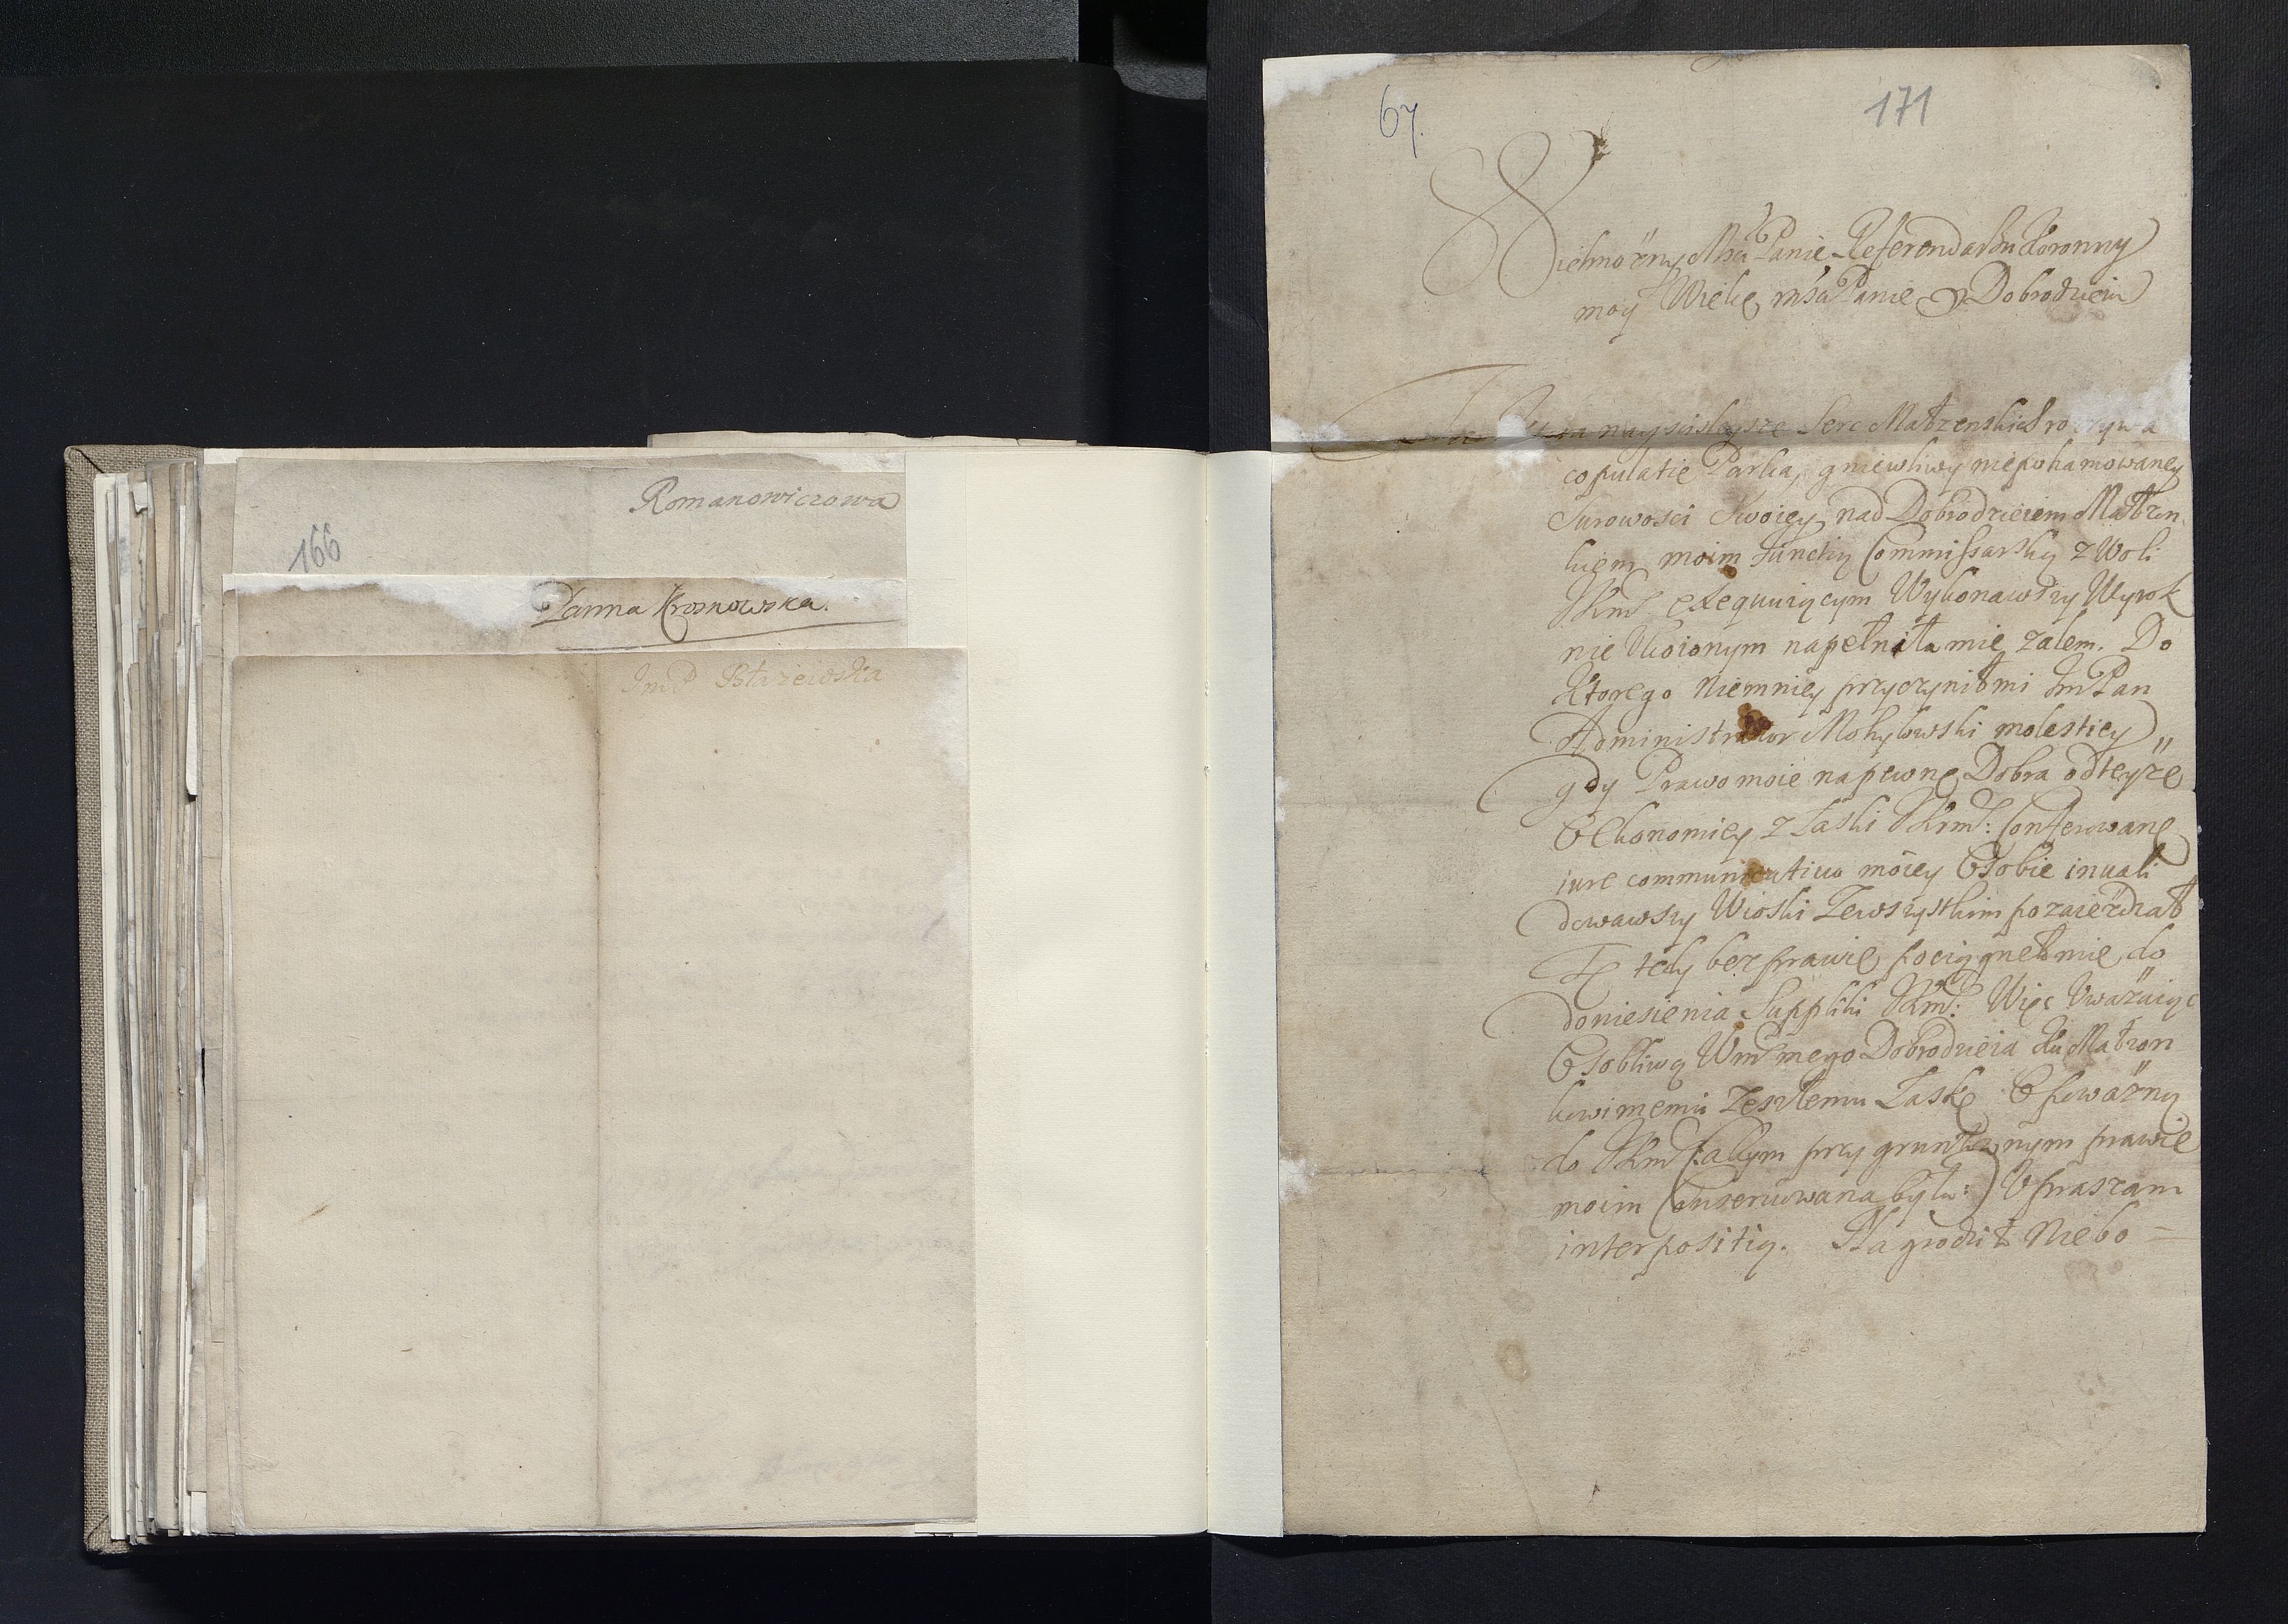 Romanowiczowa
166
Panna Krosnowska.
67.
171
Wielmożny Mści Panie Referendarzu Koronny
moy Wielce mśa Panie y Dobrodzieiu
nayscisleysze Serc Małzenskich rozrywa
copulatie Parka, gniewliwy niepohamowaney
Surowosci Swoiey nad Dobrodzieiem Małzon
kiem moim functią Commissarską z Woli
JKmś exequuiącym Wykonawszy Wyrok
nie Ukoionym napełniła mię zalem. Do
Ktorego niemniey przyczynił mi Im Pan
Administrator Mohylowski molestiey
gdy Prawo moie na pewne Dobra od teyże
Oekonomiey z Łaski JKmś: Conferowane
iure communicatiuo moiey Osobie inuali
dowawszy Wioski Zewszystkim pozaieżdzał
Te tedy bezprawie pociągneło mię do
doniesienia Suppliki JKmś: Więc Uważaiąc
Osobliwą Wmś mego Dobrodzieia ku Małzon
kowi memu Zeszłemu Łaskę O poważną
do JKmś (abym przy gruntownym prawie
moim Conseruowana była:) Upraszam
interpositią. Nagrodzi t Niebo =